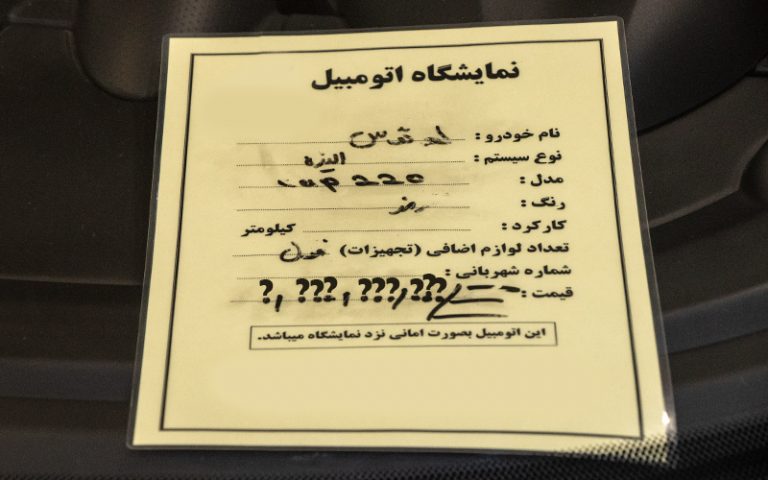 نمایشگاه اتومبیل
نام خودرو : لوتوس
نوع سیستم : الیزه
مدل : cup 220
رنگ : قرمز
کارکرد : کیلومتر
تعداد لوازم اضافی (تجهیزات) فول
شماره شهربانی :
قیمت : ?, ???, ???, ???
این اتومبیل بصورت امانی نزد نمایشگاه میباشد.